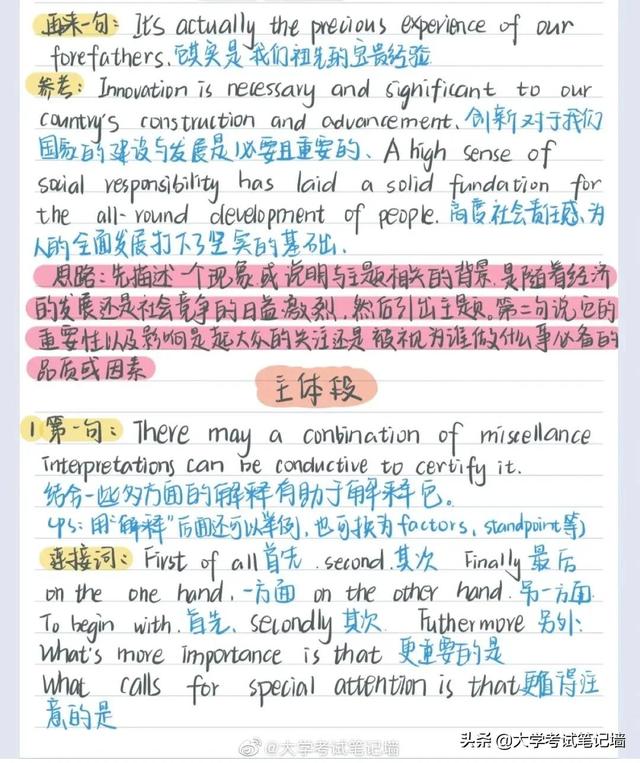 再来一句: It's actually the precious experience of our
forefathers. 它其实是我们祖先的宝贵经验
参考: Innovation is necessary and significant to our
country's construction and advancement. 创新对于我们
国家的建设与发展是必要且重要的、A high sense of
social responsibility has laid a solid fundation for
the all-round development of people. 高度社会责任感,为
人的全面发展打下了坚实的基础.
思路:先描述一个现象或说明与主题相关的背景,是随着经济
的发展还是社会竞争的日益激烈,然后引出主题。第二句说它的
重要性以及影响是起大众的关注还是被视为谁做什么事必备的
品质或因素
主体段
1 第一句: There may a conbination of miscellance
interpretations can be conductive to certify it.
结合一些多方面的解释有助于解释它。
用"解释"后面还可以举例,也可换为factors、standpoint等)
连接词: First of all 首先. second. 其次 Finally 最后
on the one hand. 一方面 on the other hand. 另一方面
To begin with. 首先. secondly 其次 Futhermore 另外.
What's more importance is that 更重要的是
What calls for special attention is that 更值得注
意的是
@大学考试笔记墙
头条 @大学考试笔记墙